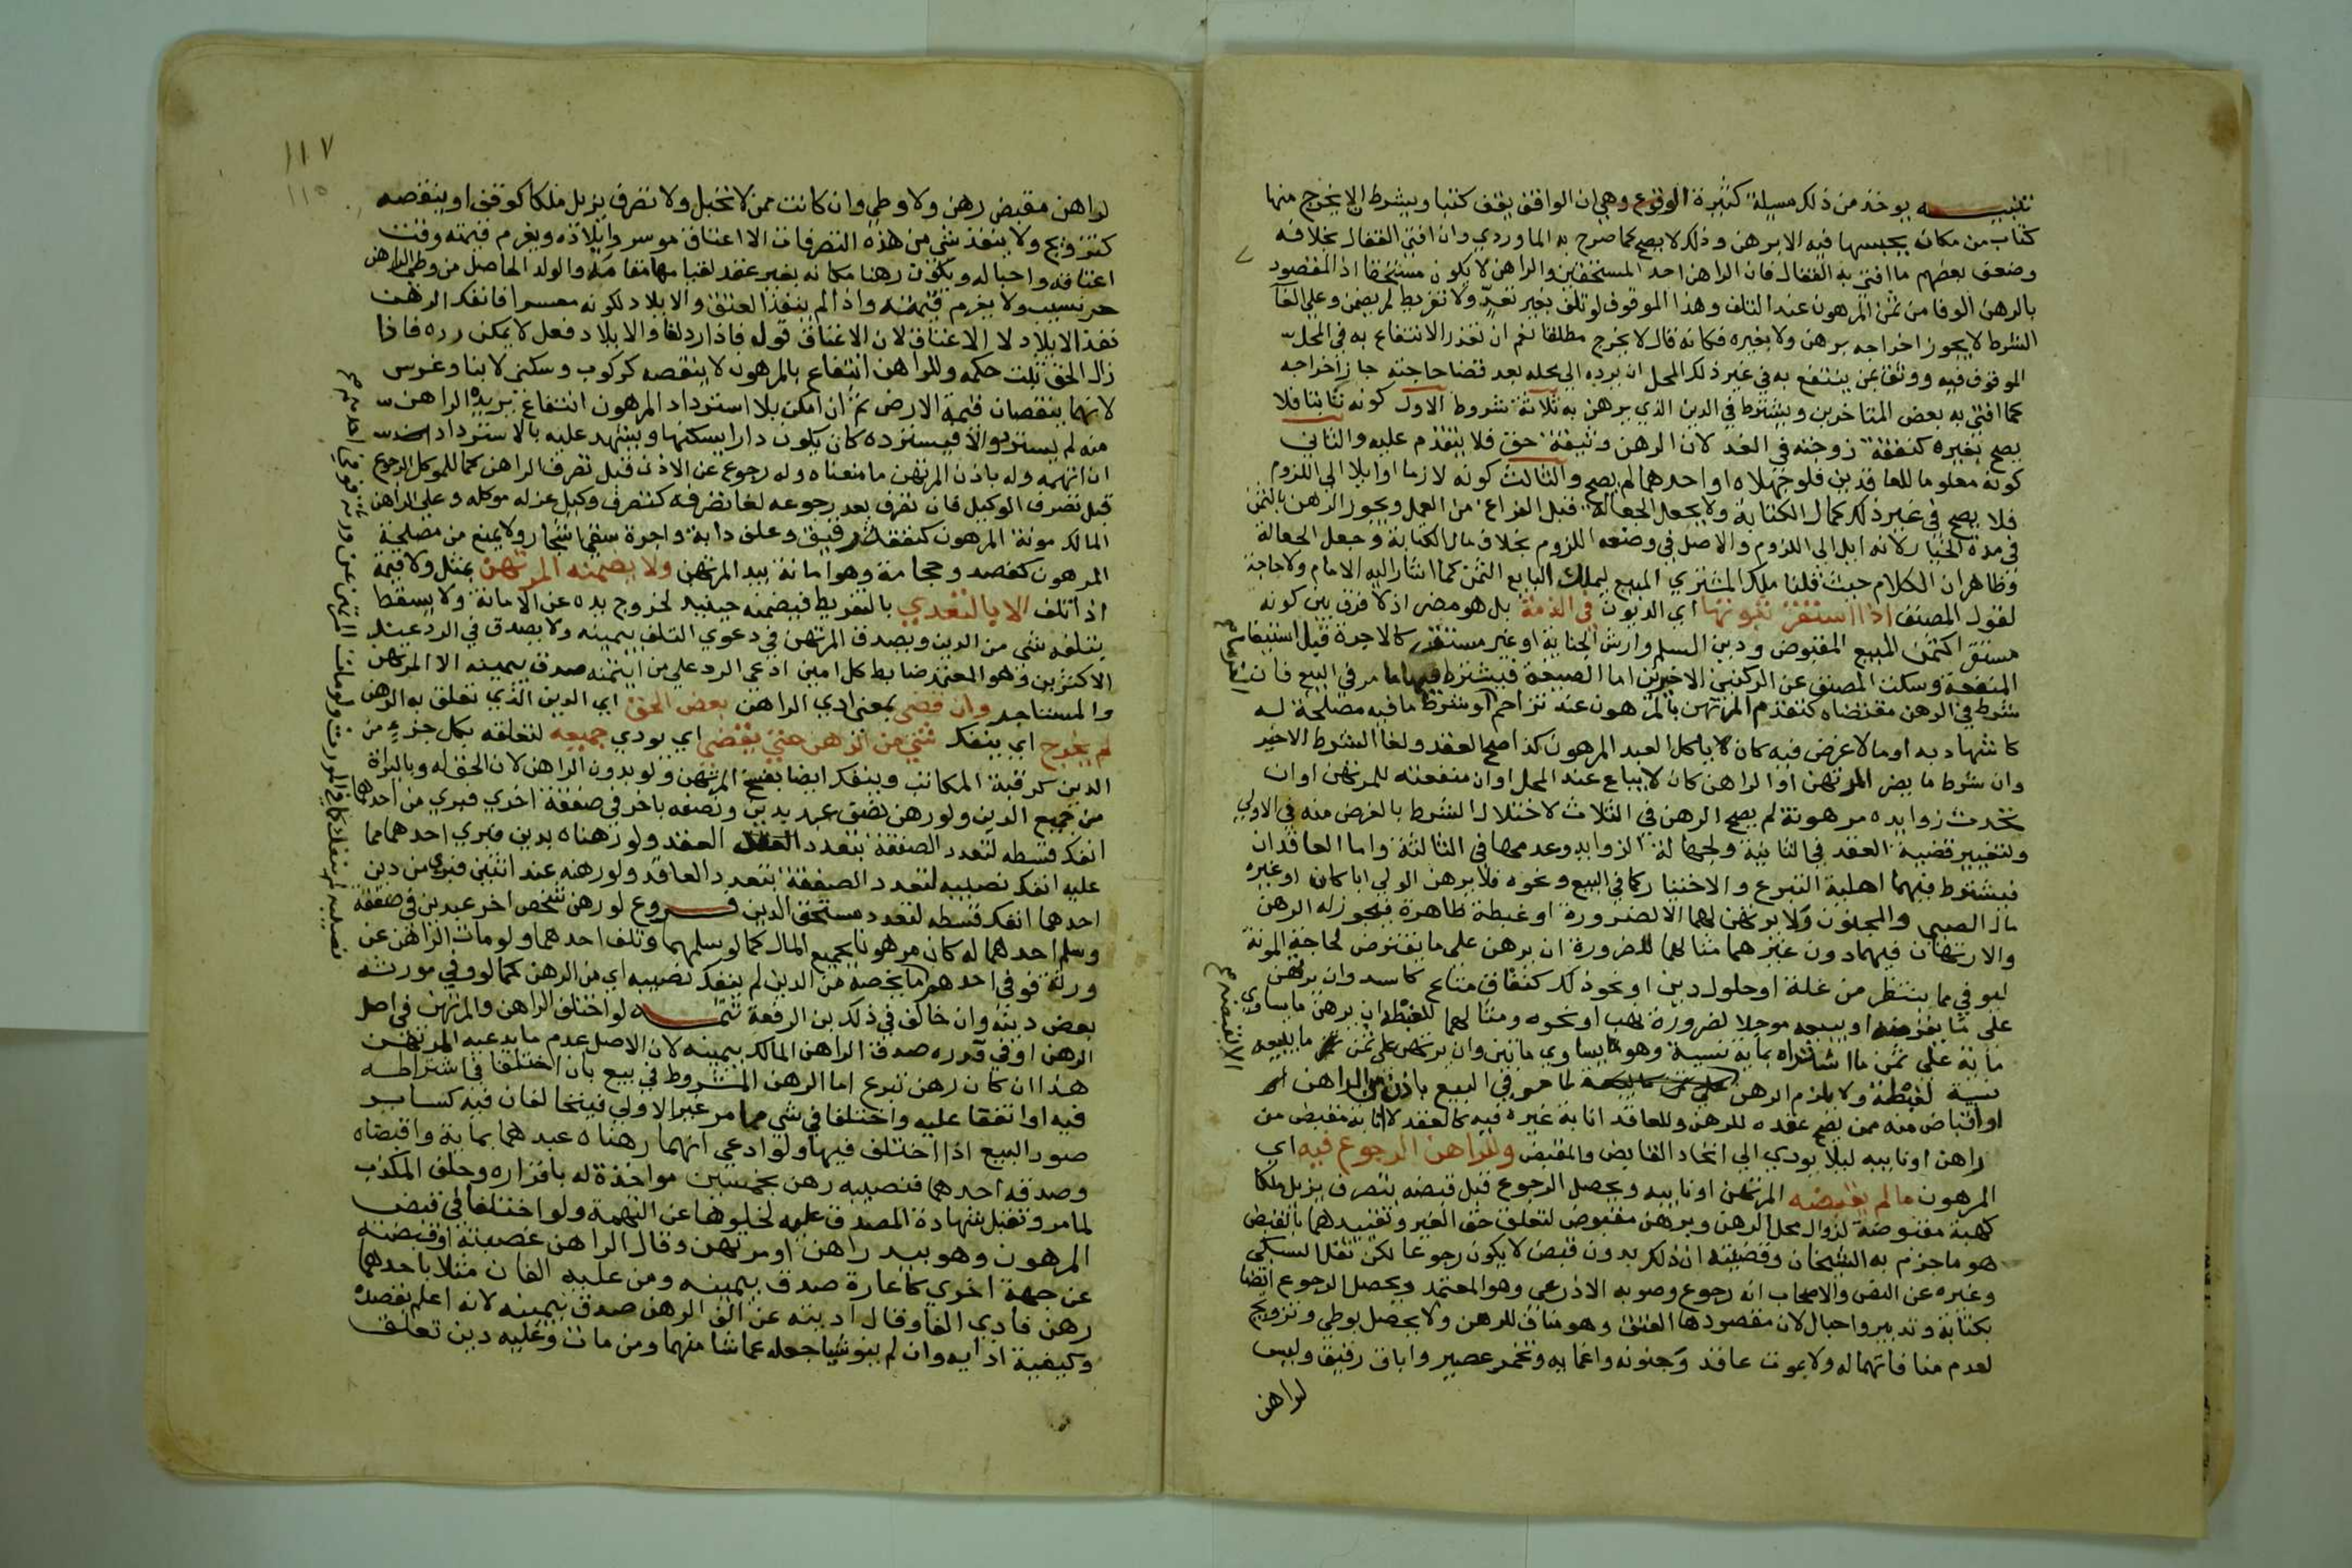 تنبيه يوخذ من ذلك مسيلة كثيرة الوقوع وهي ان الواقف يقف كتبا ويشرط ان لا يخرج منها
كتاب من مكان يحبسها فيه الا برهن وذلك لا يصح كما صرح به الماوردي وان افتى القفال بخلافه
وضعف بعضهم ما افتى به القفال فان الراهن احد المستحقين والراهن لا يكون مستحقا اذ المقصود
بالرهن الوفا من ثمن المرهون عند التلف وهذا الموقوف لو تلف بغير تعد ولا تفريط لم يضمن وعلى الغا
الشرط لا يجوز اخراجه برهن ولا بغيره فكانه قال لا يخرج مطلقا نعم ان تعذر الانتفاع به في المحل
الموقوف فيه ووثق بمن ينتفع به في غير ذلك المحل ان يرده الى محله بعد قضا حاجته جاز اخراجه
كما افتى به بعض المتاخرين ويشترط في الدين الذي يرهن به ثلاثة شروط الاول كونه ثابتا فلا
يصح بغيره كنفقة زوجته في الغد لان الرهن وثيقة حق فلا يتقدم عليه والثاني
كونه معلوما للعاقدين فلو جهلاه او احدهما لم يصح والثالث كونه لازما او ايلا الى اللزوم
فلا يصح في غير ذلك كمال الكتابة ولا بجعل الجعالة قبل الفراغ من العمل ويجوز الرهن بالثمن
في مدة الخيار لانه ايل الى اللزوم والاصل في وضعه اللزوم بخلاف مال الكتابة وجعل الجعالة
وظاهر ان الكلام حيث قلنا ملك المشتري المبيع ليملك البايع الثمن كما اشار اليه الامام ولا حاجة
لقول المصنف اذا استقر ثبوتها اي الديون في الذمة بل هو مضر اذ لا فرق بين كونه
مستقرا كثمن المبيع المقبوض ودين السلم وارش الجناية او غير مستقر كالاجرة قبل استيفا
المنفعة وسكت المصنف عن الركنين الاخيرين اما الصيغة فيشترط فيها ما مر في البيع فان
شرط في الرهن مقتضاه كتقدم المرتهن بالمرهون عند تزاحم او شرط ما فيه مصلحة له
كاشهاد به او ما لا غرض فيه كان لا ياكل العبد المرهون كذا صح العقد ولغا الشرط الاخير
وان شرط ما يضر المرتهن او الراهن كان لا يباع عند المحل او ان منفعته للمرتهن او ان
تحدث زوايده مرهونة لم يصح الرهن في الثلاث لاختلال الشرط بالغرض منه في الاولى
ولتغيير قضية العقد في الثانية ولجهالة الزوايد وعدمها في الثالثة واما العاقدان
فيشترط فيهما اهلية التبرع والاختيار كما في البيع ونحوه فلا يرهن الولي ابا كان او غيره
مال الصبي والمجنون ولا يرتهن لهما الا لضرورة او غبطة ظاهرة فيجوز له الرهن
والارتهان فيهما دون غيرهما مثالهما للضرورة ان يرهن على ما يقترض لحاجة المونة
ليوفي مما ينتظر من غلة او حلول دين او نحو ذلك كنفاق متاع كاسد وان يرتهن
على ما يقرضه او يبيعه موجلا لضرورة نهب او نحوه ومثالهما للغبطة ان يرهن ما يساوي
ماية على ثمن ما اشتراه بماية نسية وهو يساوي ماتين وان يرتهن على ثمن ما يبيعه
نسية لغبطة ولا يلزم الرهن لما مر في البيع باذن من الراهن
او اقباض منه ممن يصح عقده للرهن وللعاقد انابة غيره فيه كالعقد لا انابة مقبض من
راهن او نايبه ليلا يودي الى اتحاد القابض والمقبض وللراهن الرجوع فيه اي
المرهون ما لم يقبضه المرتهن او نايبه ويحصل الرجوع قبل قبضه بتصرف يزيل ملكا
كهبة مقبوضة لزوال محل الرهن وبرهن مقبوض لتعلق حق الغير وتقييدهما بالقبض
هو ما جزم به الشيخان وقضيته ان ذلك بدون قبض لا يكون رجوعا لكن نقل السبكي
وغيره عن النص والاصحاب انه رجوع وصوبه الاذرعي وهو المعتمد ويحصل الرجوع ايضا
بكتابة وتدبير واحبال لان مقصودها العتق وهو مناف للرهن ولا يحصل بوطي وتزويج
لعدم منافاتهما له ولا بموت عاقد وجنونه واغمايه وتخمر عصير واباق رقيق وليس
لراهن
١١٧
١١٥
لراهن مقبض رهن ولا وطي وان كانت ممن لا تحبل ولا تصرف يزيل ملكا كوقف او ينقصه
كتزويج ولا ينفذ شي من هذه التصرفات الا اعتاق موسر وايلاده ويغرم قيمته وقت
اعتاقه واحباله ويكون رهنا مكانه بغير عقد لقيامها مقامه والولد الحاصل من وطي الراهن
حر نسيب ولا يغرم قيمته واذا لم ينفذ العتق والايلاد لكونه معسرا فانفك الرهن
نفذ الايلاد لا الاعتاق لان الاعتاق قول فاذا رد لغا والايلاد فعل لا يمكن رده فاذا
زال الحق ثبت حكمه وللراهن انتفاع بالمرهون لا ينقصه كركوب وسكنى لا بنا وغرس
لانهما ينقصان قيمة الارض ثم ان امكن بلا استرداد المرهون انتفاع يريده الراهن
منه لم يسترد والا فيسترده كان يكون دارا يسكنها ويشهد عليه بالاسترداد
ان اتهمه وله باذن المرتهن ما منعناه وله رجوع عن الاذن قبل تصرف الراهن كما للموكل الرجوع
قبل تصرف الوكيل فان تصرف بعد رجوعه لغا تصرفه كتصرف وكيل عزله موكله وعلى الراهن
المالك مونة المرهون كنفقة رقيق وعلف دابة واجرة سقي اشجار ولا يمنع من مصلحة
المرهون كفصد وحجامة وهو امانة بيد المرتهن ولا يضمنه المرتهن بمثل ولا قيمة
اذا تلف الا بالتعدي بالتفريط فيضمنه حينيذ لخروج يده عن الامانة ولا يسقط
بتلفه شي من الدين ويصدق المرتهن في دعوى التلف بيمينه ولا يصدق في الرد عند
الاكثرين وهو المعتمد ضابط كل امين ادعى الرد على من ايتمنه صدق بيمينه الا المرتهن
والمستاجر وان قضى بمعنى ادى الراهن بعض الحق اي الدين الذي تعلق به الرهن
لم يخرج اي ينفك شي من الرهن حتى يقضى اي يودى جميعه لتعلقه بكل جزء من
الدين كرقبة المكاتب وينفك ايضا بفسخ المرتهن ولو بدون الراهن لان الحق له وبالبراة
من جميع الدين ولو رهن نصف عبد بدين ونصفه باخر في صفقة اخرى فبري من احدهما
انفك قسطه لتعدد الصفقة بتعدد العقد ولو رهناه بدين فبري احدهما مما
عليه انفك نصيبه لتعدد الصفقة بتعدد العاقد ولو رهنه عند اثنين فبري من دين
احدهما انفك قسطه لتعدد مستحق الدين فروع لو رهن شخص اخر عبدين في صفقة
وسلم احدهما له كان مرهونا بجميع المال كما لو سلمهما وتلف احدهما ولو مات الراهن عن
ورثة فوفى احدهم ما يخصه من الدين لم ينفك نصيبه اي من الرهن كما لو وفى مورثه
بعض دينه وان خالف في ذلك بن الرفعة تتمه لو اختلف الراهن والمرتهن في اصل
الرهن او في قدره صدق الراهن المالك بيمينه لان الاصل عدم ما يدعيه المرتهن
هذا ان كان رهن تبرع اما الرهن المشروط في بيع بان اختلفا في اشتراطه
فيه او اتفقا عليه واختلفا في شي مما مر غير الاولى فيتحالفان فيه كساير
صور البيع اذا اختلف فيها ولو ادعى انهما رهناه عبدهما بماية واقبضاه
وصدقه احدهما فنصيبه رهن بخمسين مواخذة له باقراره وحلف المكذب
لما مر وتقبل شهادة المصدق عليه لخلوها عن التهمة ولو اختلفا في قبض
المرهون وهو بيد راهن او مرتهن وقال الراهن غصبته او قبضته
عن جهة اخرى كاعارة صدق بيمينه ومن عليه الفان مثلا باحدهما
رهن فادى الفا وقال اديته عن الف الرهن صدق بيمينه لانه اعلم بقصده
وكيفية ادايه وان لم ينو شيا جعله عما شا منهما ومن مات وعليه دين تعلق